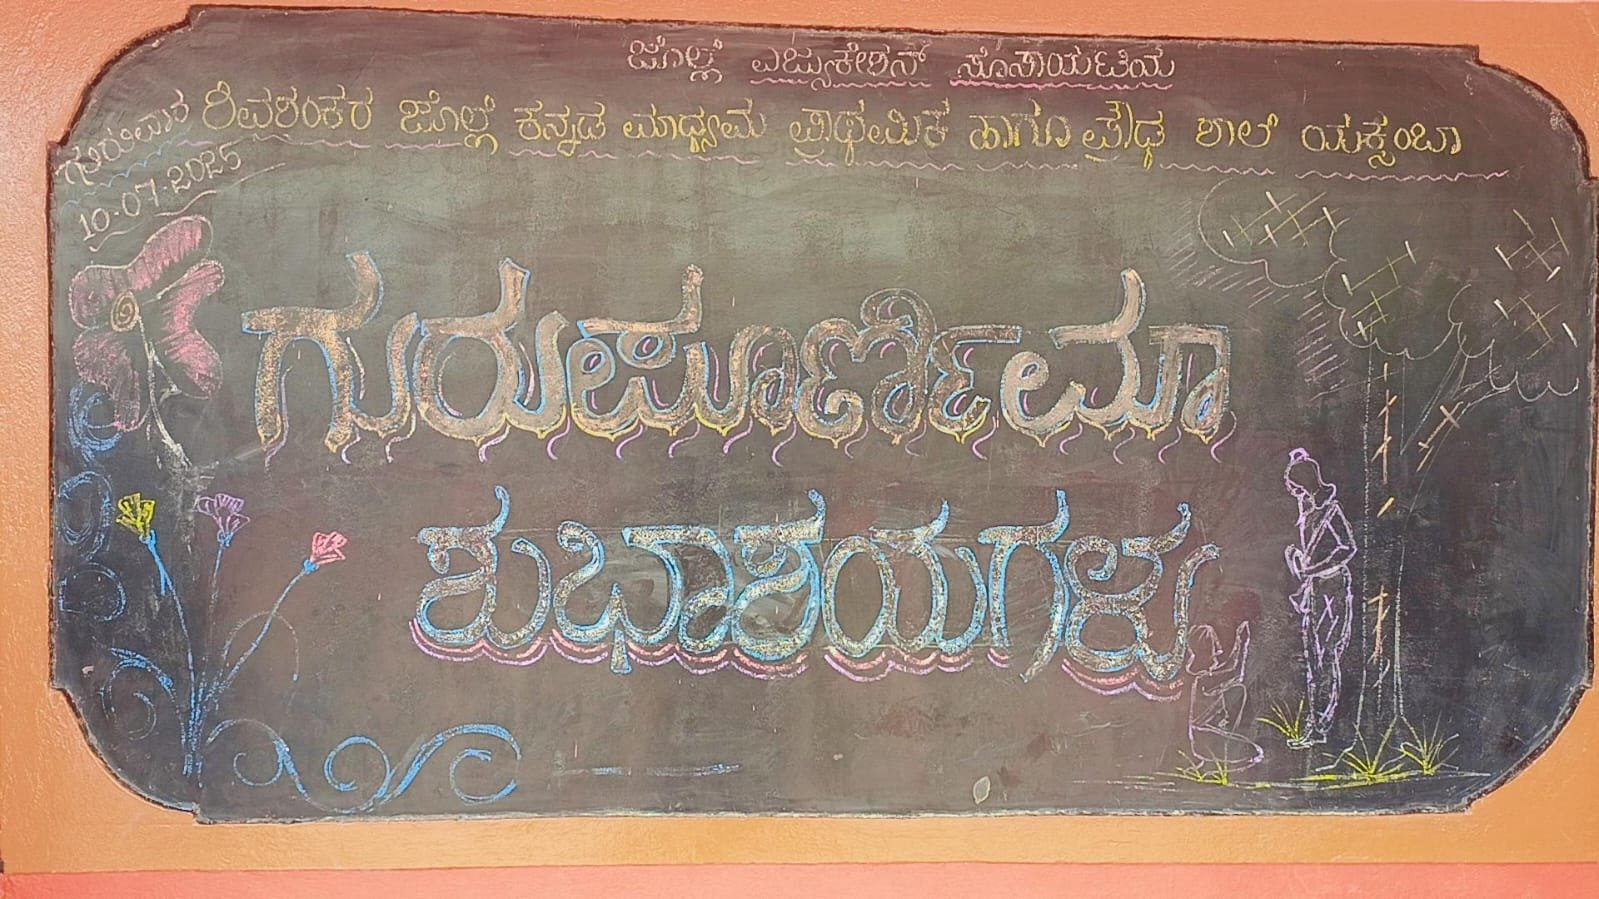 ಜೊಲ್ಲೆ ಎಜ್ಯುಕೇಶನ್ ಸೊಸಾಯಟಿಯ
ಶಿವಶಂಕರ ಜೊಲ್ಲೆ ಕನ್ನಡ ಮಾಧ್ಯಮ ಪ್ರಾಥಮಿಕ ಹಾಗೂ ಪ್ರೌಢ ಶಾಲೆ ಯಕ್ಸಂಬಾ
ಗುರುವಾರ
10.07.2025
ಗುರುಪೂರ್ಣಿಮಾ
ಶುಭಾಶಯಗಳು